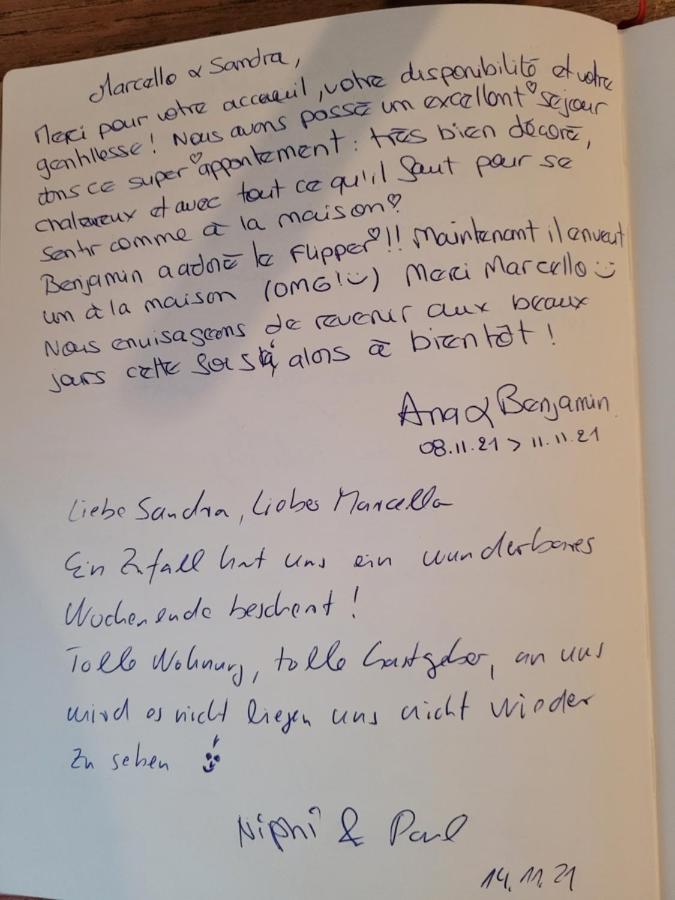 Marcello & Sandra,
Merci pour votre acceuil, votre disponibilité et votre
gentillesse! Nous avons passé un excellent♡séjour
dns ce super♡appartement: très bien décoré,
chaleureux et avec tout ce qu'il faut pour se
sentir comme à la maison♡
Benjamin a adoré le Flipper♡!! Maintenant il en veut
un à la maison (OMG!☺) Merci Marcello☺
Nous envisageons de revenir aux beaux
jours cette fois, alors à bientôt!
Ana & Benjamin
08.11.21 > 11.11.21
Liebe Sandra, Liebes Marcella
Ein Zufall hat uns ein wunderbares
Wochenende beschert!
Tolle Wohnung, tolle Gastgeber, an uns
wird es nicht liegen uns nicht wieder
zu sehen
Niphi & Paul
14.11.21